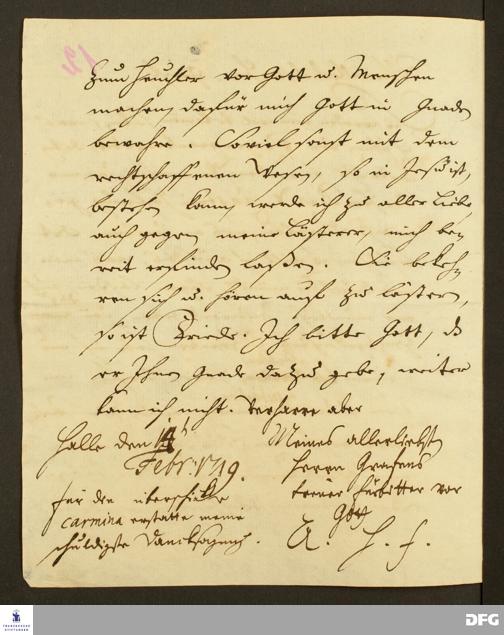 zum Heuchler vor Gott u. Menschen
machen, dafür mich Gott in Gnaden
bewahre. Soviel sonst mit dem
rechtschaffenen Wesen, so in Jesu ist,
bestehen kann, werde ich zu aller Liebe,
auch gegen meine Lästerer, mich be-
reit erfinden laßen. Sie bekeh-
ren sich u. hören auf zu lästern,
so ist Friede. Ich bitte Gott, dß
er Ihnen Gnade dazu gebe, weiter
kann ich nicht. Verharre aber
Halle den
Febr: 1719.
Meines allerliebsten
Herrn Grafens
treuer Fürbitter vor
Gott
A. H. F.
für die überschickte
Carmina erstatte meine
schuldigste Dancksagung.
FRANCKESCHE
STIFTUNGEN
DFG